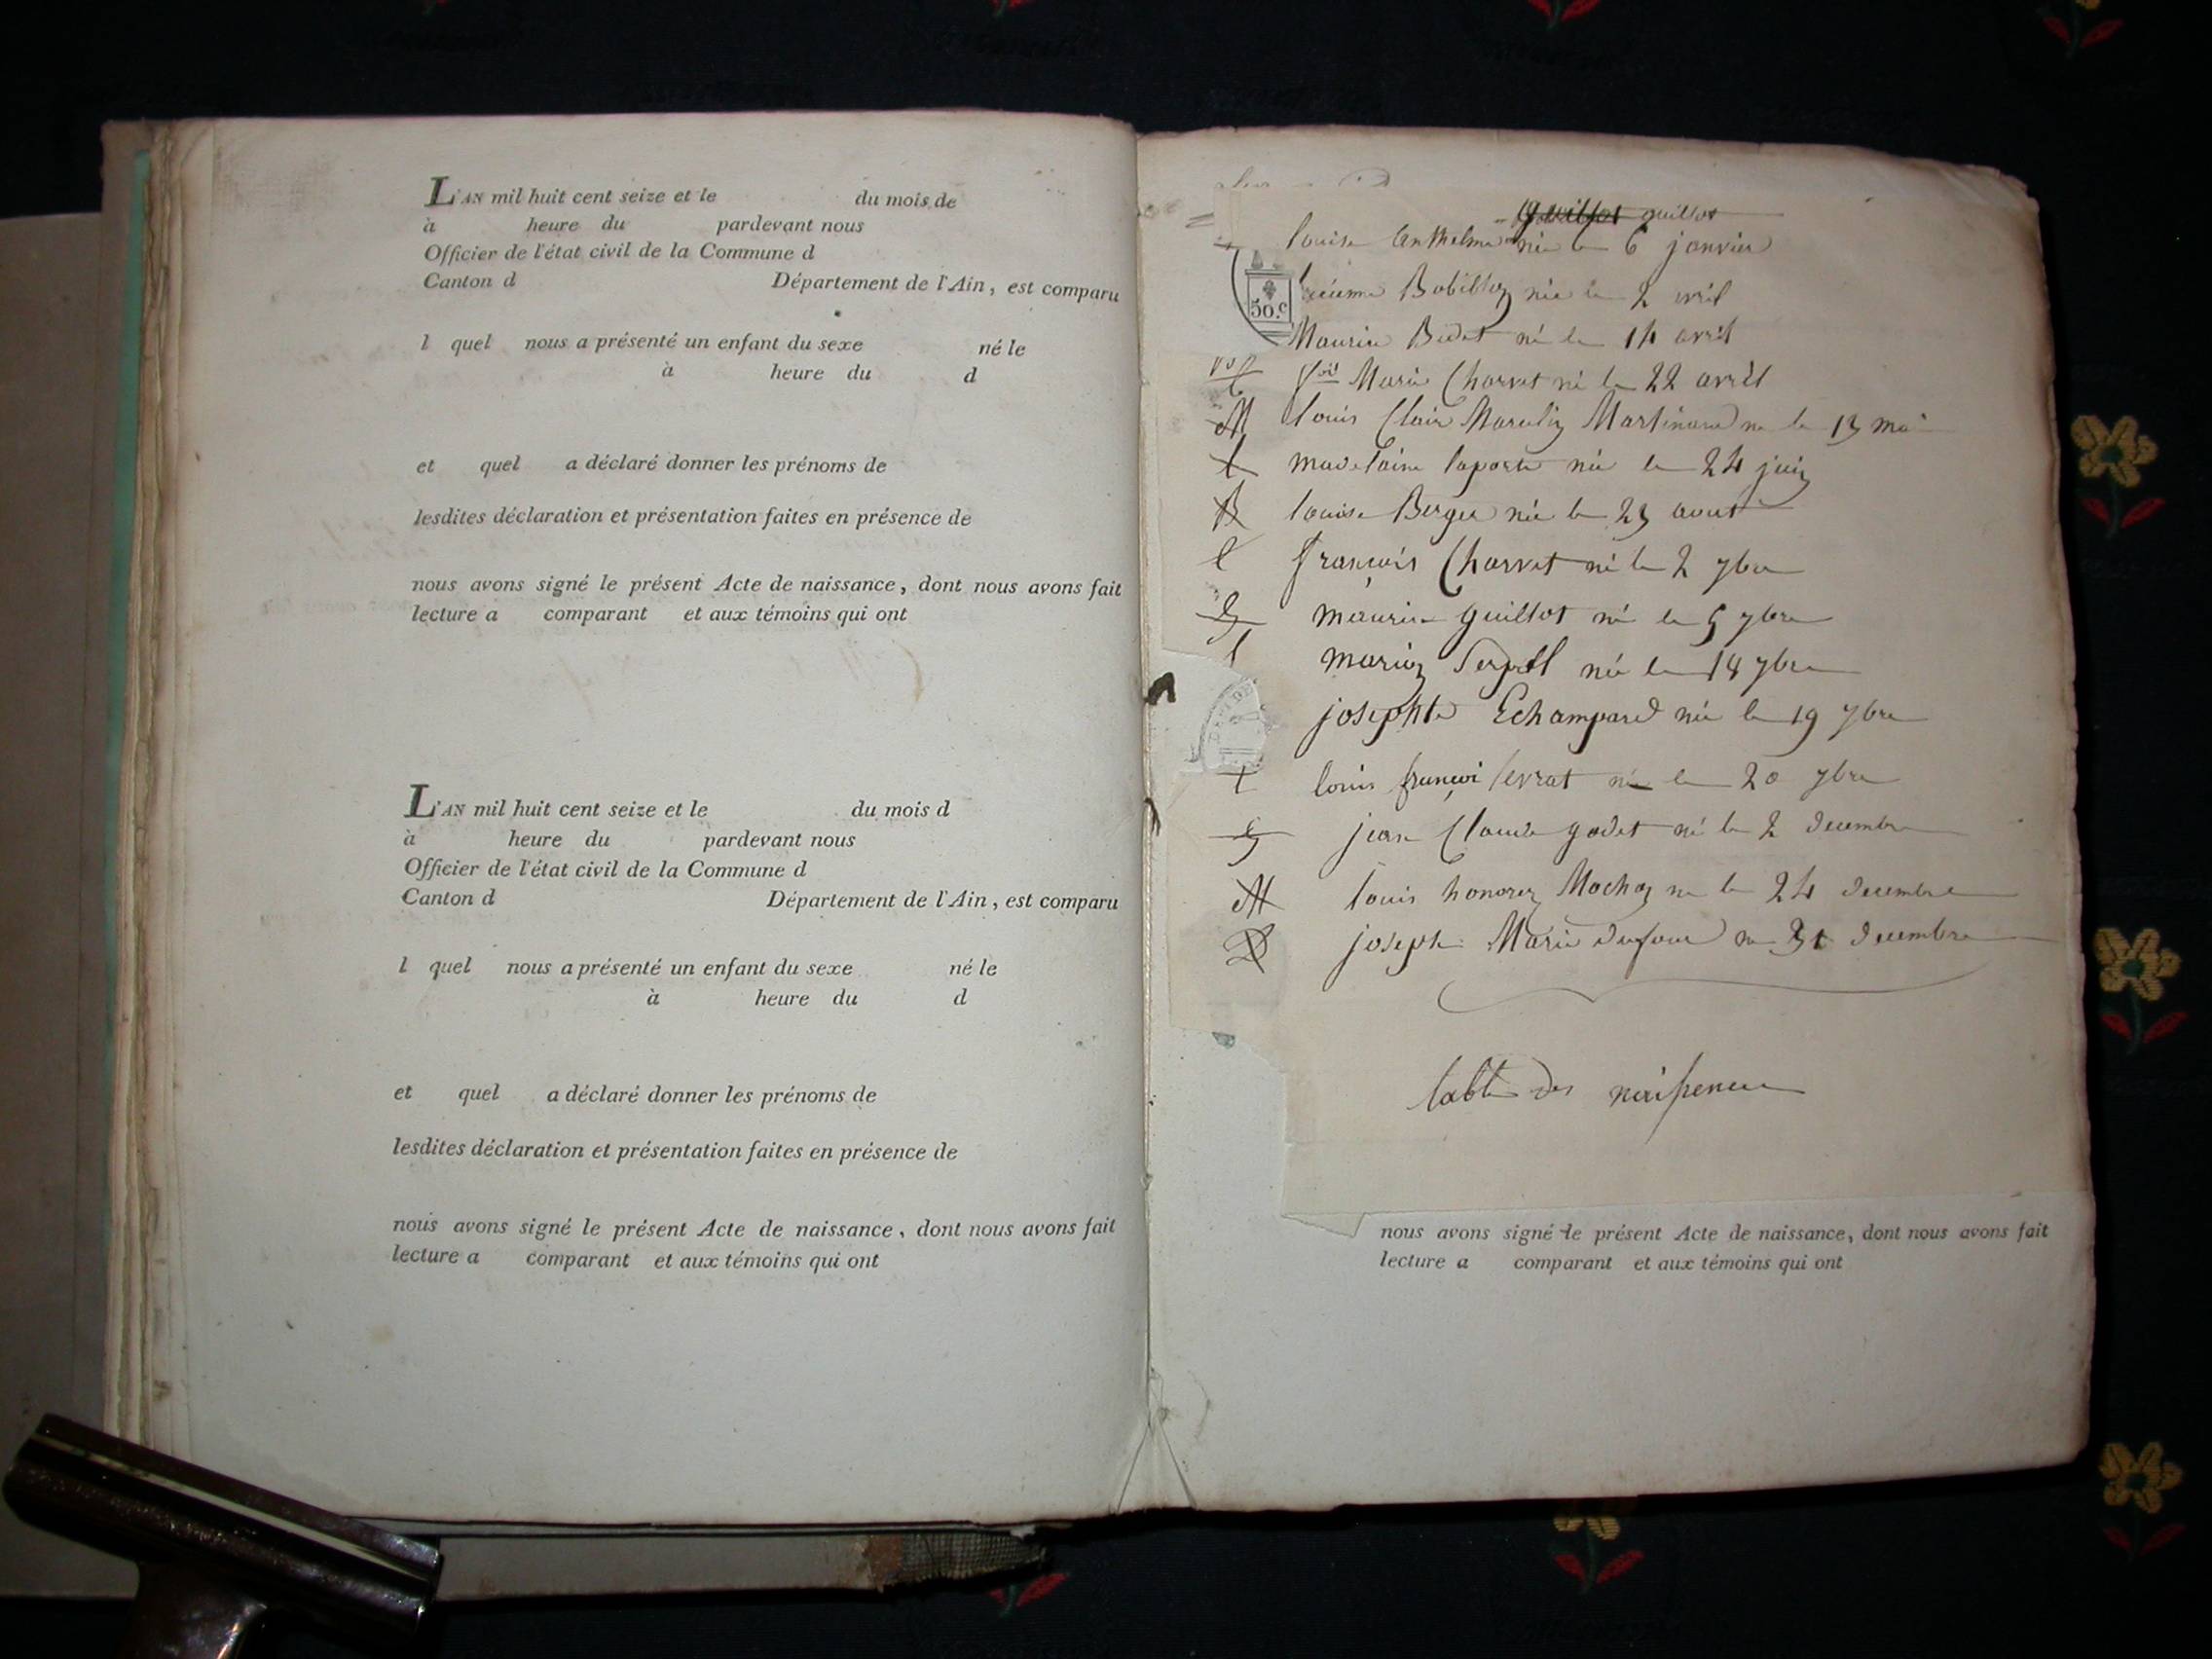 L'AN mil huit cent seize et le du mois de
à heure du pardevant nous
Officier de l'état civil de la Commune d
Canton d Département de l'Ain, est comparu
l quel nous a présenté un enfant du sexe né le
à heure du d
et quel a déclaré donner les prénoms de
lesdites déclaration et présentation faites en présence de
nous avons signé le présent Acte de naissance, dont nous avons fait
lecture a comparant et aux témoins qui ont
L'AN mil huit cent seize et le du mois d
à heure du pardevant nous
Officier de l'état civil de la Commune d
Canton d Département de l'Ain, est comparu
l quel nous a présenté un enfant du sexe né le
à heure du d
et quel a déclaré donner les prénoms de
lesdites déclaration et présentation faites en présence de
nous avons signé le présent Acte de naissance, dont nous avons fait
lecture a comparant et aux témoins qui ont
guillot guillot
louise Anthelme née le 6 janvier
Bobillon née le 2 avril
50.c
Maurice Bidet né le 14 avril
Marie Charvet né le 22 avril
M louis Clair Marcelin Martinand né le 13 mai
l madelaine laporte née le 24 juin
B louise Berger née le 23 aout
C françois Charvet né le 2 7bre
g maurice guillot né le 5 7bre
marion née le 18 7bre
josephte Echampard née le 19 7bre
louis françoi levrat né le 20 7bre
g jean Claude godet né le 2 decembre
M louis honorez Mochon né le 24 decembre
D joseph Marie dufour né 31 decembre
table des naissences
nous avons signé le présent Acte de naissance, dont nous avons fait
lecture a comparant et aux témoins qui ont